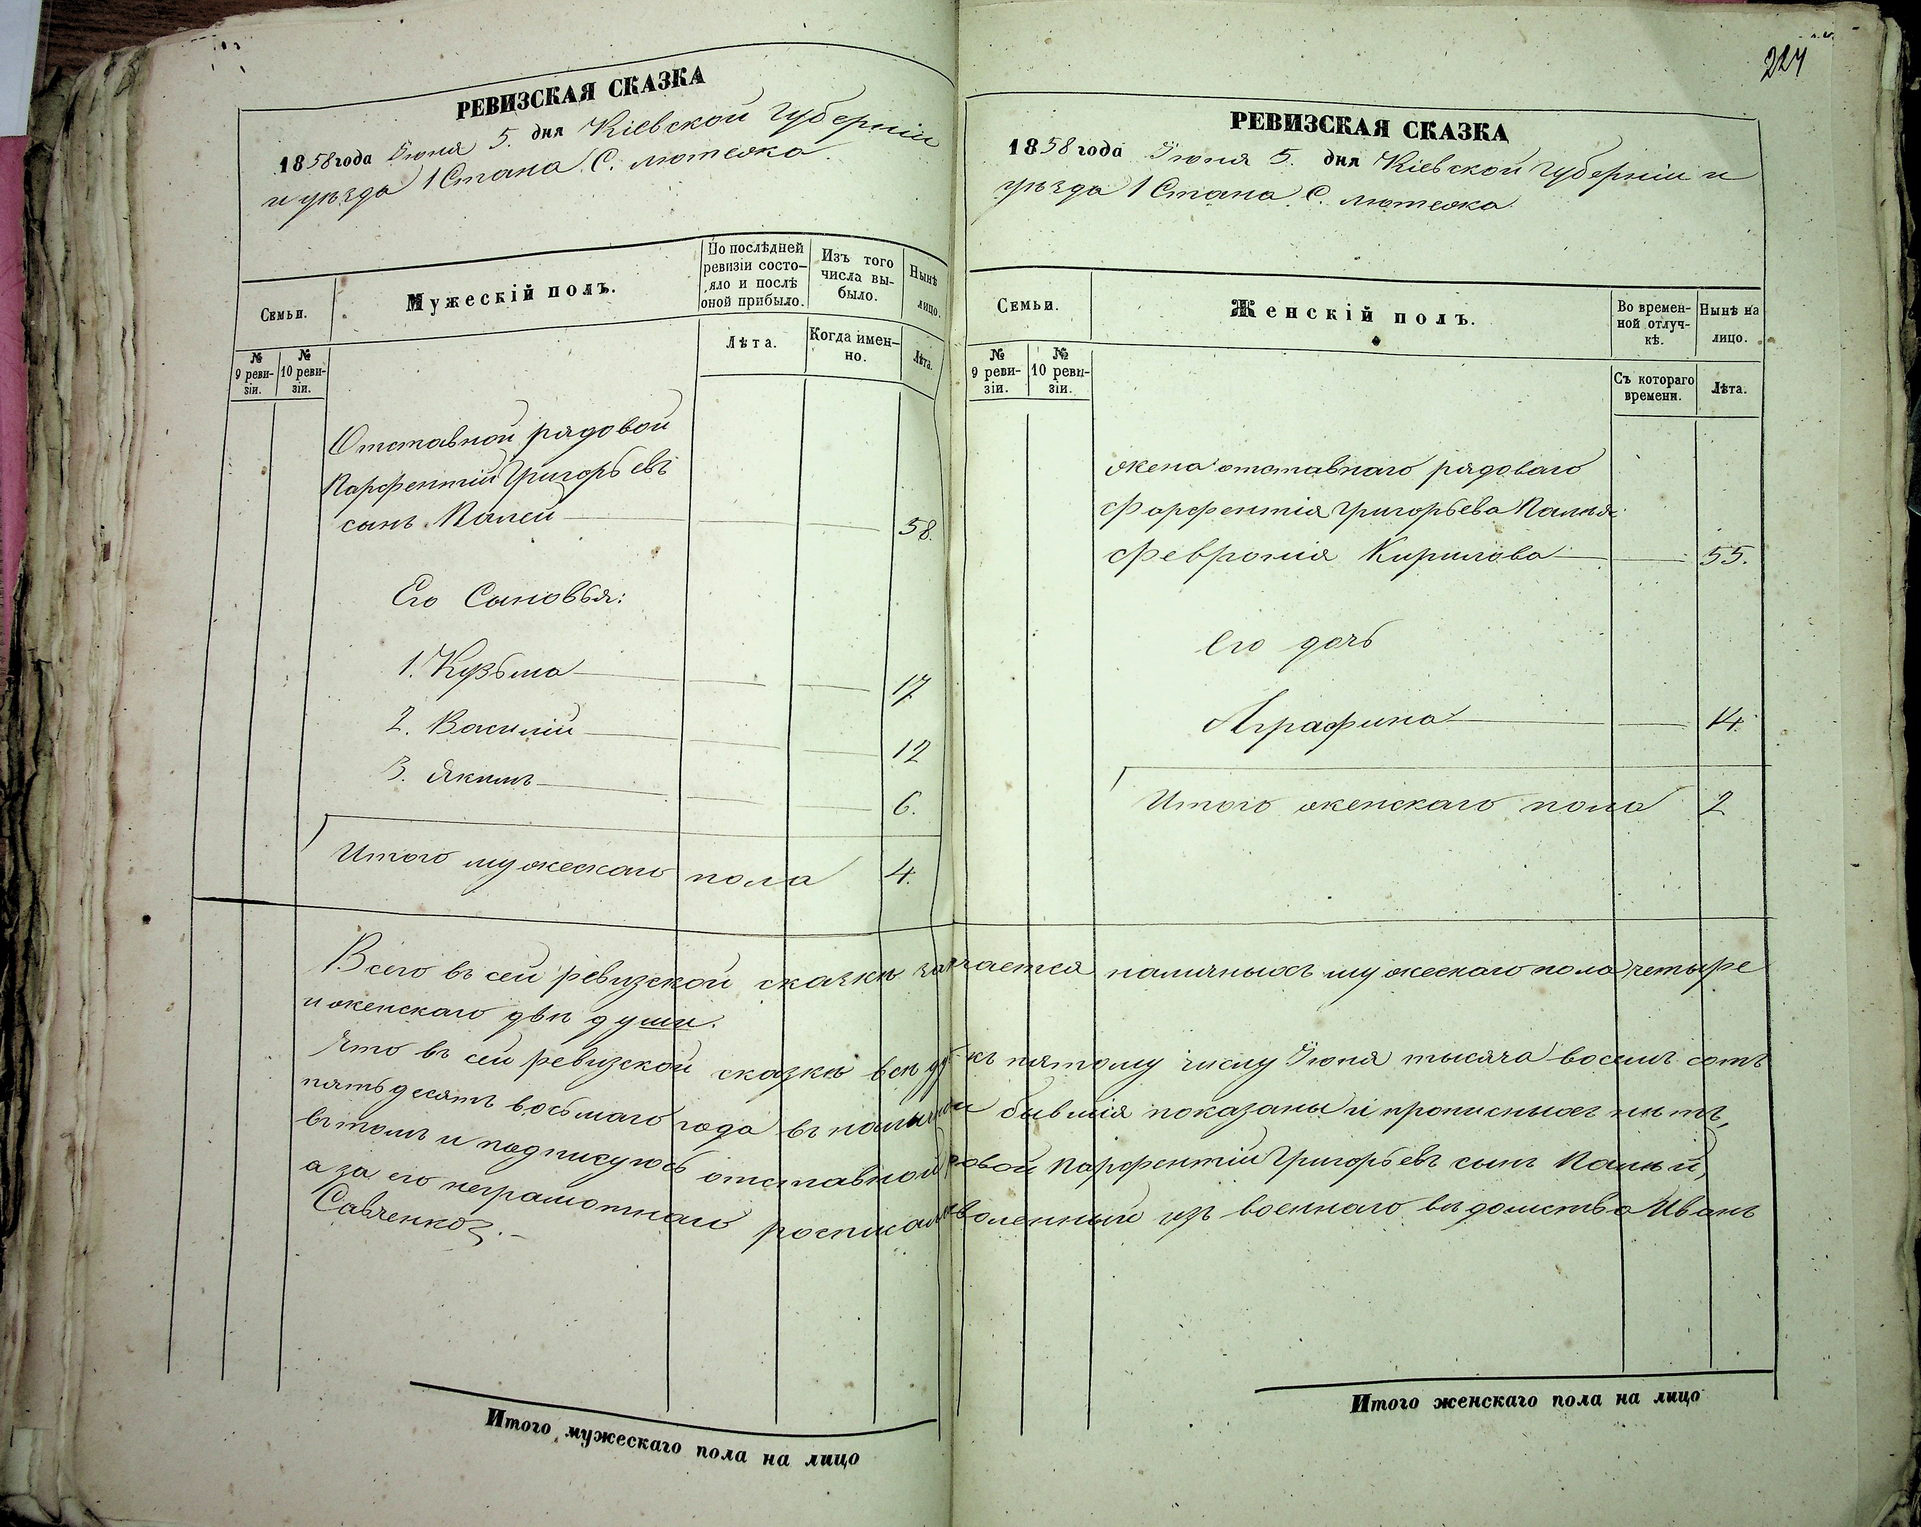 224
РЕВИЗСКАЯ СКАЗКА
1858 года Іюня 5. дня Кіевской Губерніи
и уѣзда 1 Стана С. Лютежа.
Семьи.
Мужескій полъ.
По послѣдней ревизіи состо-
яло и послѣ оной прибыло.
Изъ того числа вы-
было.
Нынѣ
лицо.
№ 9 реви-
зіи.
№ 10 реви-
зіи.
Лѣта.
Когда имен-
но.
Лѣта.
Отставной рядовой
Парфентій Григорьевъ
сынъ Палей 58.
Его Сыновья:
1. Кузьма 17
2. Василій 12
3. Якимъ 6.
Итого мужескаго пола 4.
РЕВИЗСКАЯ СКАЗКА
1858 года Іюня 5. дня Кіевской Губерніи и
уѣзда 1 Стана С. Лютежа.
Семьи.
Женскій полъ.
Во времен-
ной отлуч-
кѣ.
Нынѣ на
лицо.
№ 9 реви-
зіи.
№ 10 реви-
зіи.
Съ котораго
времени.
Лѣта.
жена отставнаго рядоваго
Фарфентія Григорьева Палѣя
Февронія Кирилова 55.
Его дочь
Аграфина 14.
Итого женскаго пола 2
Всего въ сей ревизской сказкѣ наличныхъ мужескаго пола четыре
и женскаго двѣ души.
Что въ сей ревизской сказкѣ всѣ къ пятому числу Іюня тысяча восемь сотъ
пятьдесятъ восьмаго года въ бывшія показаны и прописныхъ нѣтъ,
въ томъ и подписуюсь отставной Парфентій Григорьевъ сынъ Палѣй,
а за его неграмотнаго росписался изъ военнаго вѣдомства Иванъ
Савченко.
Итого мужескаго пола на лицо
Итого женскаго пола на лицо